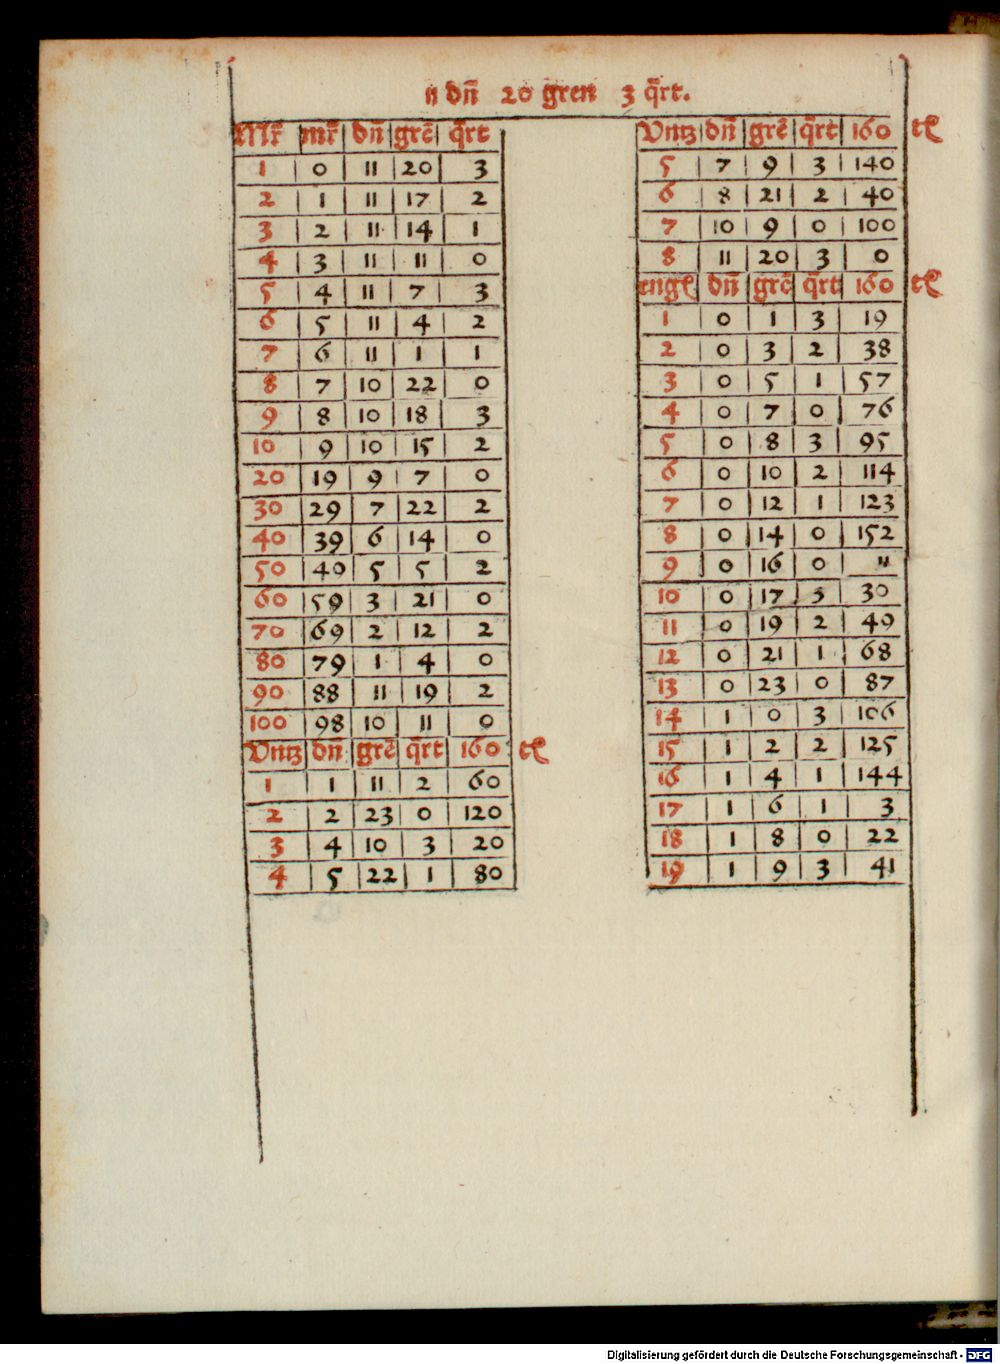 11 dn̄ 20 gren 3 q̄rt.
Mr̄ mr̄ dn̄ grē q̄rt
1 0 11 20 3
2 1 11 17 2
3 2 11 14 1
4 3 11 11 0
5 4 11 7 3
6 5 11 4 2
7 6 11 1 1
8 7 10 22 0
9 8 10 18 3
10 9 10 15 2
20 19 9 7 0
30 29 7 22 2
40 39 6 14 0
50 49 5 5 2
60 59 3 21 0
70 69 2 12 2
80 79 1 4 0
90 88 11 19 2
100 98 10 11 0
Vntz dn̄ grē q̄rt 160 tl
1 1 11 2 60
2 2 23 0 120
3 4 10 3 20
4 5 22 1 80
Vntz dn̄ grē q̄rt 160 tl
5 7 9 3 140
6 8 21 2 40
7 10 9 0 100
8 11 20 3 0
engl dn̄ grē q̄rt 160 tl
1 0 1 3 19
2 0 3 2 38
3 0 5 1 57
4 0 7 0 76
5 0 8 3 95
6 0 10 2 114
7 0 12 1 123
8 0 14 0 152
9 0 16 0 11
10 0 17 3 30
11 0 19 2 49
12 0 21 1 68
13 0 23 0 87
14 1 0 3 106
15 1 2 2 125
16 1 4 1 144
17 1 6 1 3
18 1 8 0 22
19 1 9 3 41
Digitalisierung gefördert durch die Deutsche Forschungsgemeinschaft - DFG